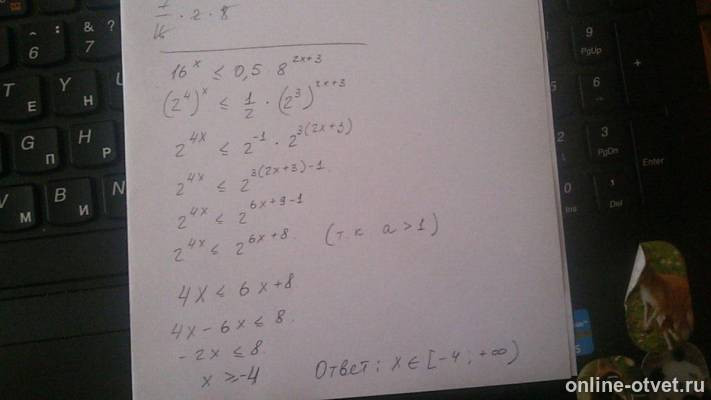 16^x ≤ 0,5 · 8^(2x+3)
(2^4)^x ≤ 1/2 · (2^3)^(2x+3)
2^(4x) ≤ 2^(-1) · 2^(3(2x+3))
2^(4x) ≤ 2^(3(2x+3)-1)
2^(4x) ≤ 2^(6x+9-1)
2^(4x) ≤ 2^(6x+8) (т.к a>1)
4x ≤ 6x+8
4x-6x ≤ 8
-2x ≤ 8
x ≥ -4
Ответ: x ∈ [-4; +∞)
^
6
&
7
:
?
T
Е
Y
Н
G
П
H
Р
V
М
B
И
N
9
PgUp
+
3
PgDn
Enter
0
Ins
Del
online-otvet.ru